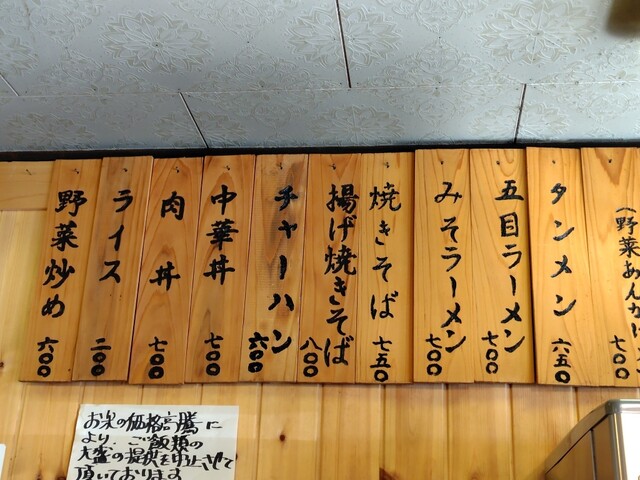 (野菜あんか
七〇〇
タンメン
六五〇
五目ラーメン
七〇〇
みそラーメン
七〇〇
焼きそば
七五〇
揚げ焼きそば
八〇〇
チャーハン
六〇〇
中華丼
七〇〇
肉丼
七〇〇
ライス
二〇〇
野菜炒め
六〇〇
お米の価格高騰に
より、ご飯類の
大盛の提供を中止させて
頂いております